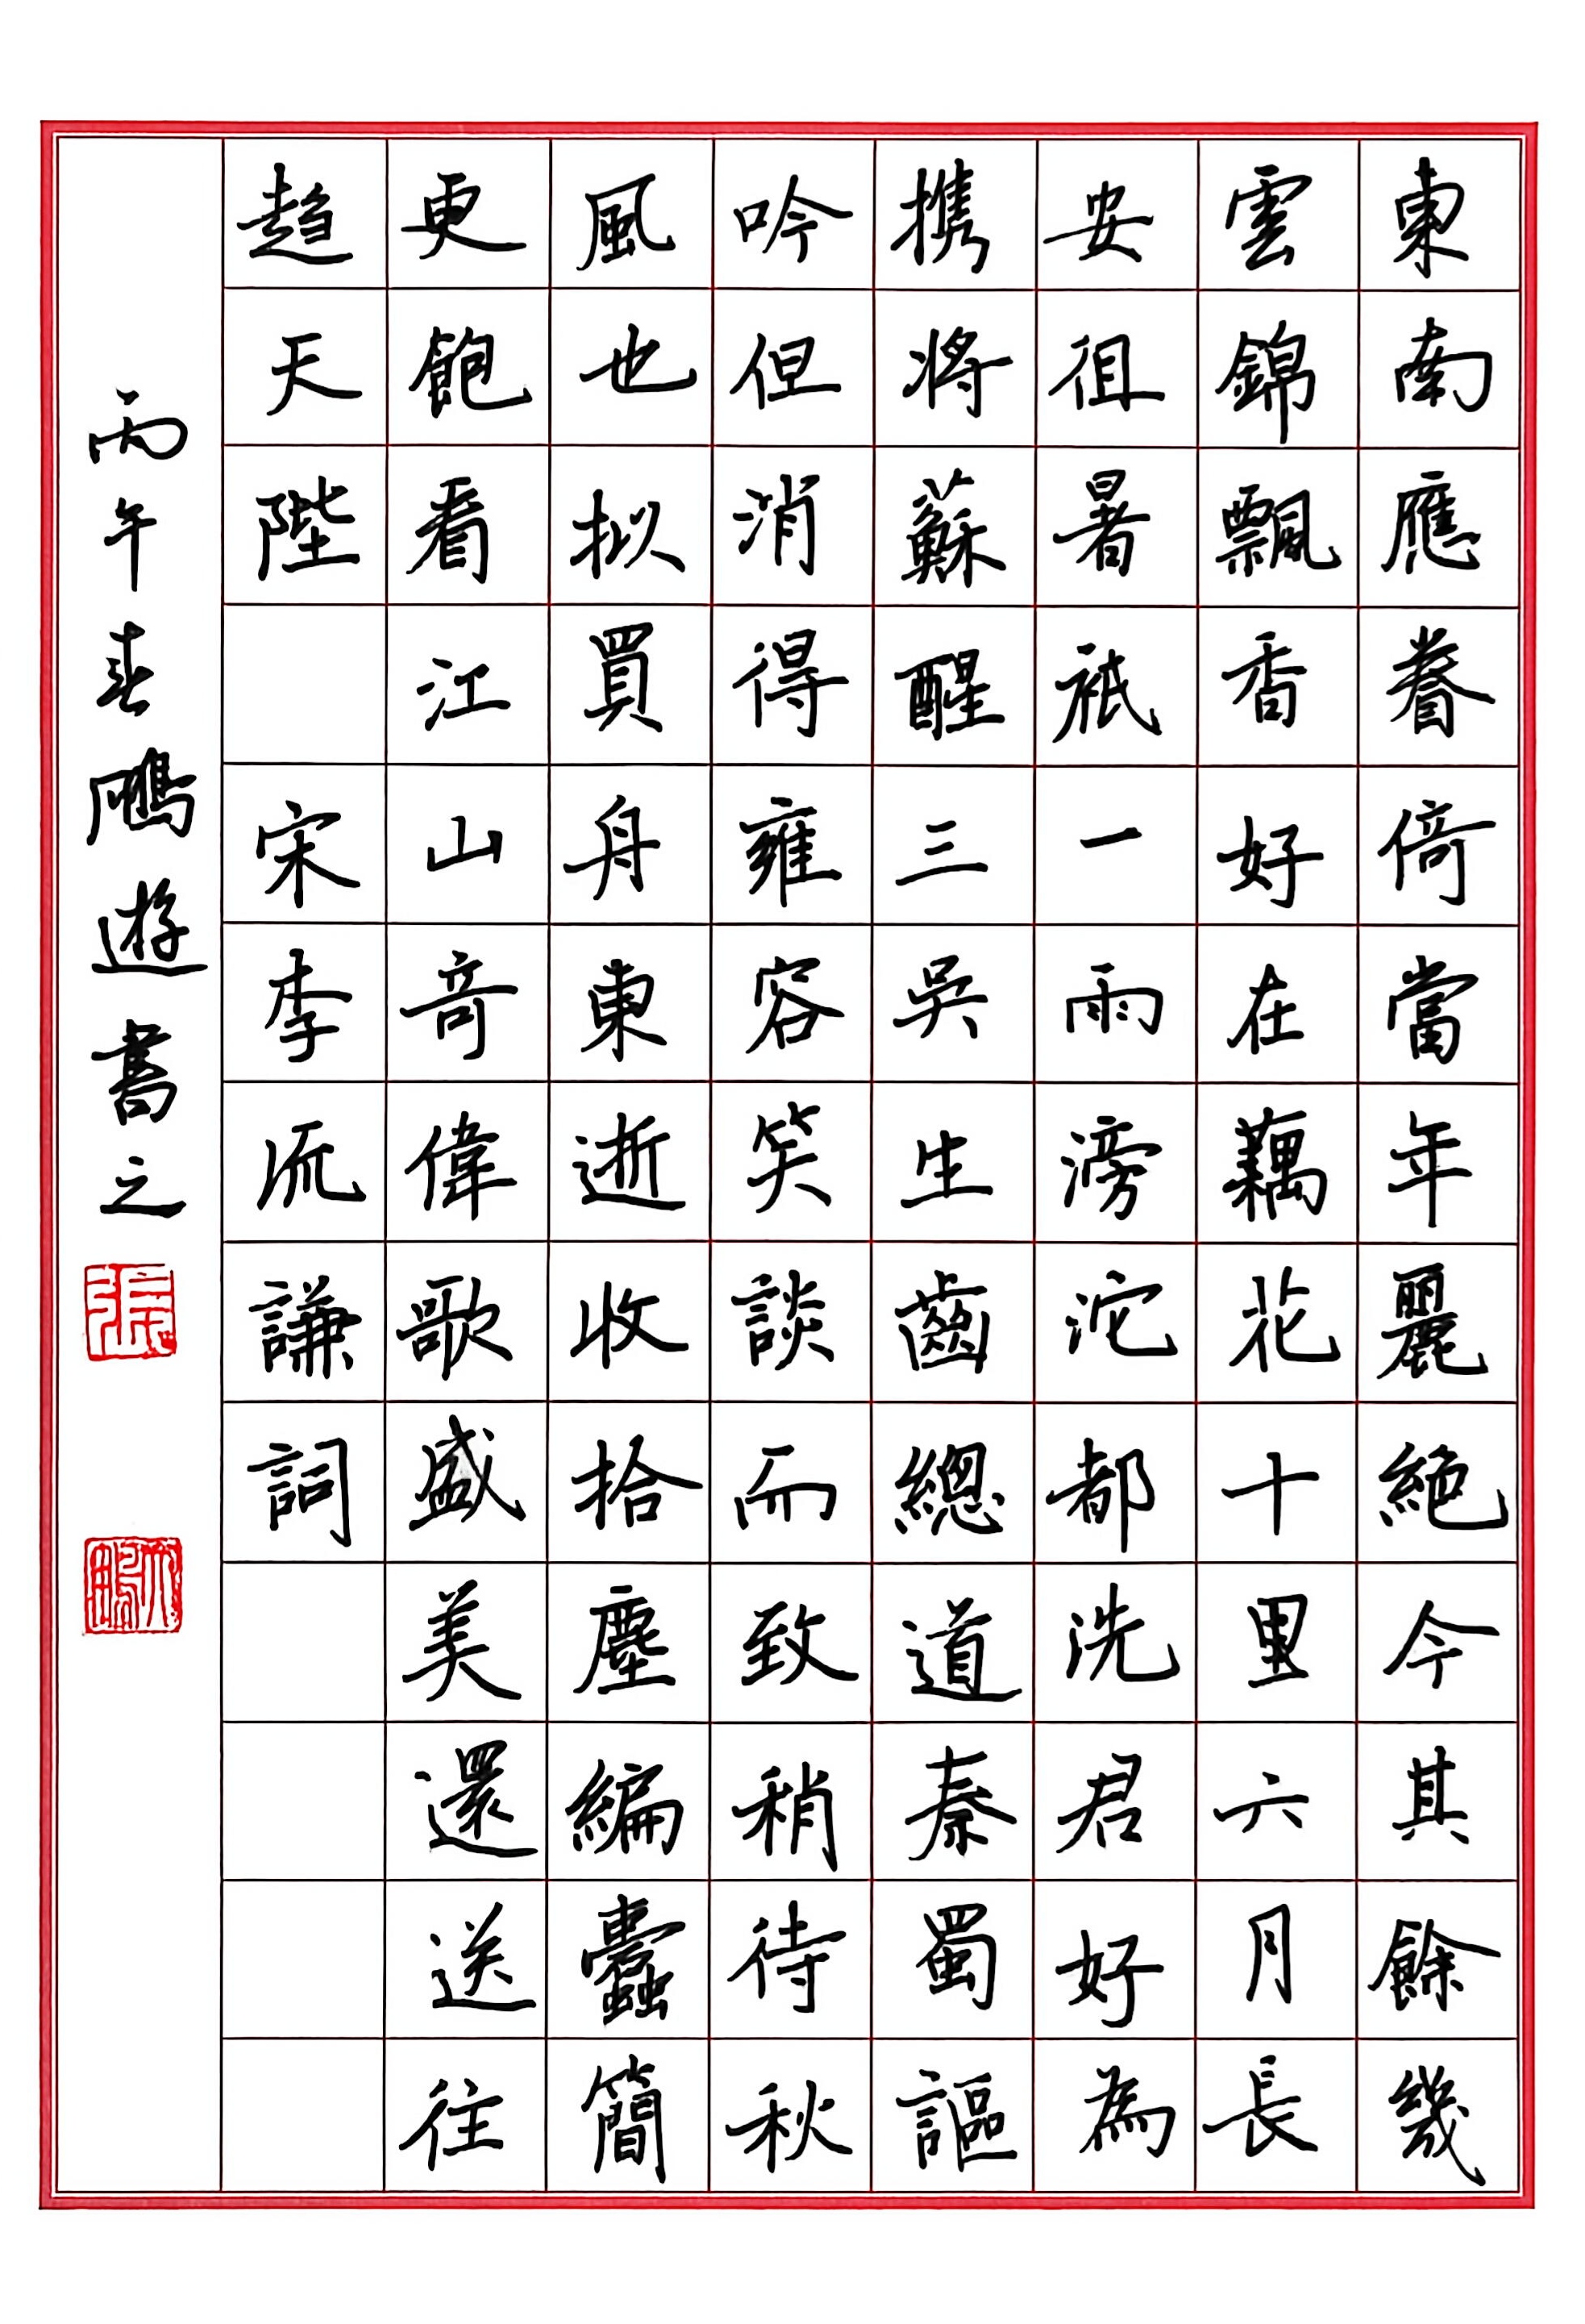 東南應眷倚當年麗絕今其餘幾
雲錦飄香好在藕花十里六月長
安徂暑衹一雨滂沱都洗君好為
携將蘇醒三吳生齒總道秦蜀謳
吟但消得雍容笑談而致稍待秋
風也拟買舟東逝收拾塵編蠹簡
更飽看江山奇偉歌盛美還送往
趨天陛 宋李流謙詞
丙午春鵬遊書之